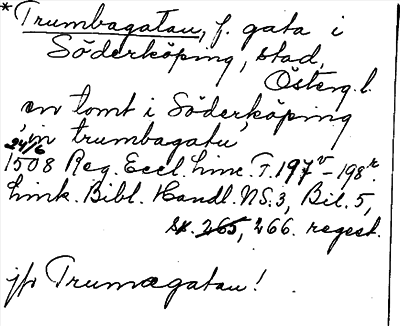 * Trumbagatan, f. gata i
Söderköping, stad,
Österg. l.
en tomt i Söderköping
in trumbagatu
24/6
1508 Reg. Eccl. Linc. T. 197v-198r.
Link. Bibl. Handl. NS. 3, Bil. 5,
sx. 265, 266. regest.
jfr Trumægatan!